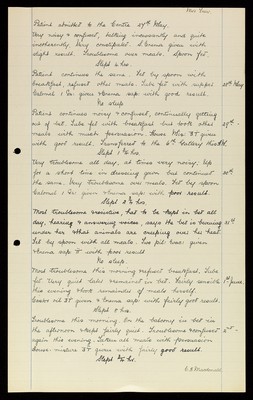 Patient admitted to the Centre 27th May.
Very noisy & confused, talking incessantly and quite
incoherently. Very constipated. S. Enema given with
slight result. Troublesome over meals. Spoon fed.
Slept 2 hrs.
Patient continues the same. Fed by spoon with 28th May
breakfast, refused other meals. Tube fed with supper
Calomel given Enema sap with good result.
No sleep
Patient continues noisy & confused, continually getting
out of bed. Tube fed with breakfast but took other 29th -
meals with much persuasion. given
with good result. Transferred to the
Slept hrs.
Very troublesome all day, at times very noisy. Up
for a short time in dressing gown but continued 30th
the same. Very troublesome over meals. Fed by spoon
Calomel given Enema sap with poor result.
Slept hrs.
Most troublesome resistive, had to be kept in bed all
day, hearing & answering voices, says the bed is burning 31st
under her & that animals are creeping over her head.
Fed by spoon with all meals. given
Enema sap with poor result
No sleep.
Most troublesome this morning refused breakfast. Tube
fed. Very quiet later remained in bed. Fairly sensible 1st June
this evening & took remainder of meals herself.
Castor oil given & Enema sap with fairly good result.
Slept hrs.
Troublesome this morning. On the balcony in bed in
the afternoon & kept fairly quiet. Troublesome & confused 2nd -
again this evening. Taken all meals with persuasion
House mixture given with fairly good result.
Slept hrs.